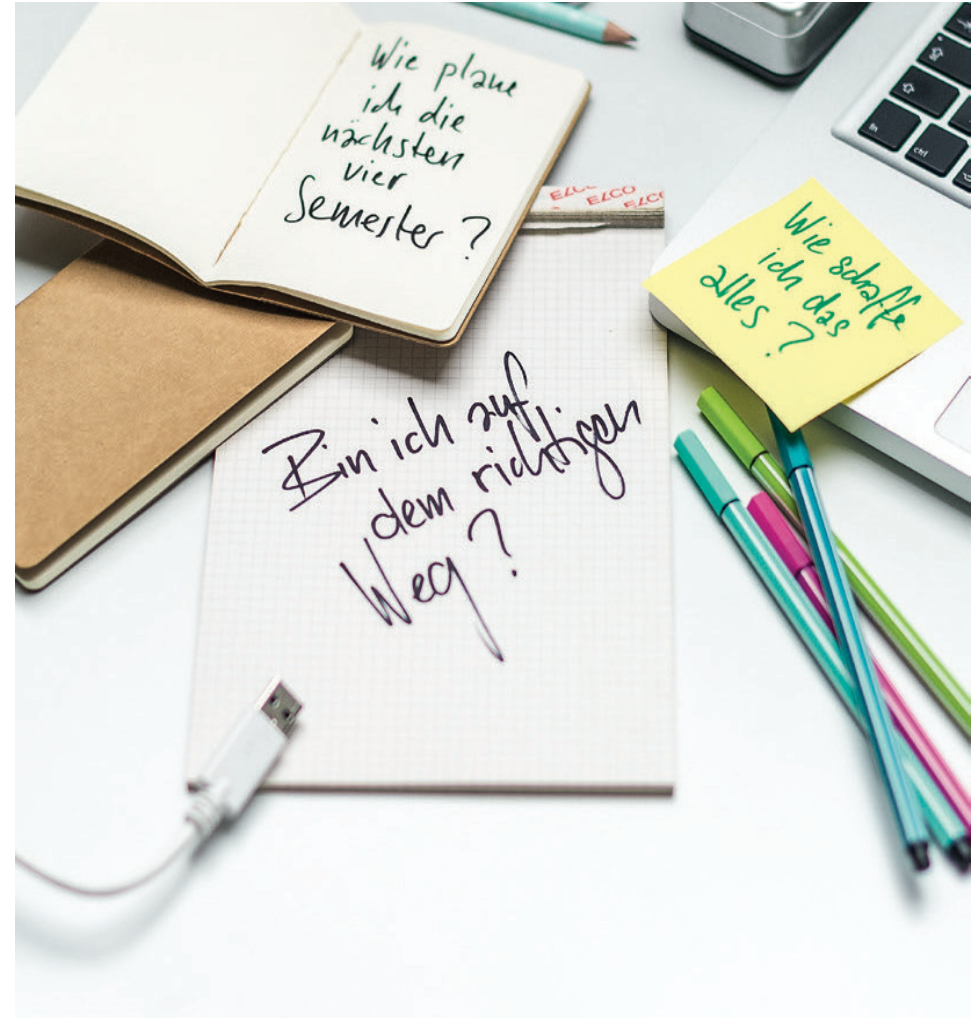 Wie plane
ich die
nächsten
vier
Semester?
ELCO
ELCO
ELCO
Wie schaffe
ich das
alles?
Bin ich auf
dem richtigen
Weg?
fn
ctrl